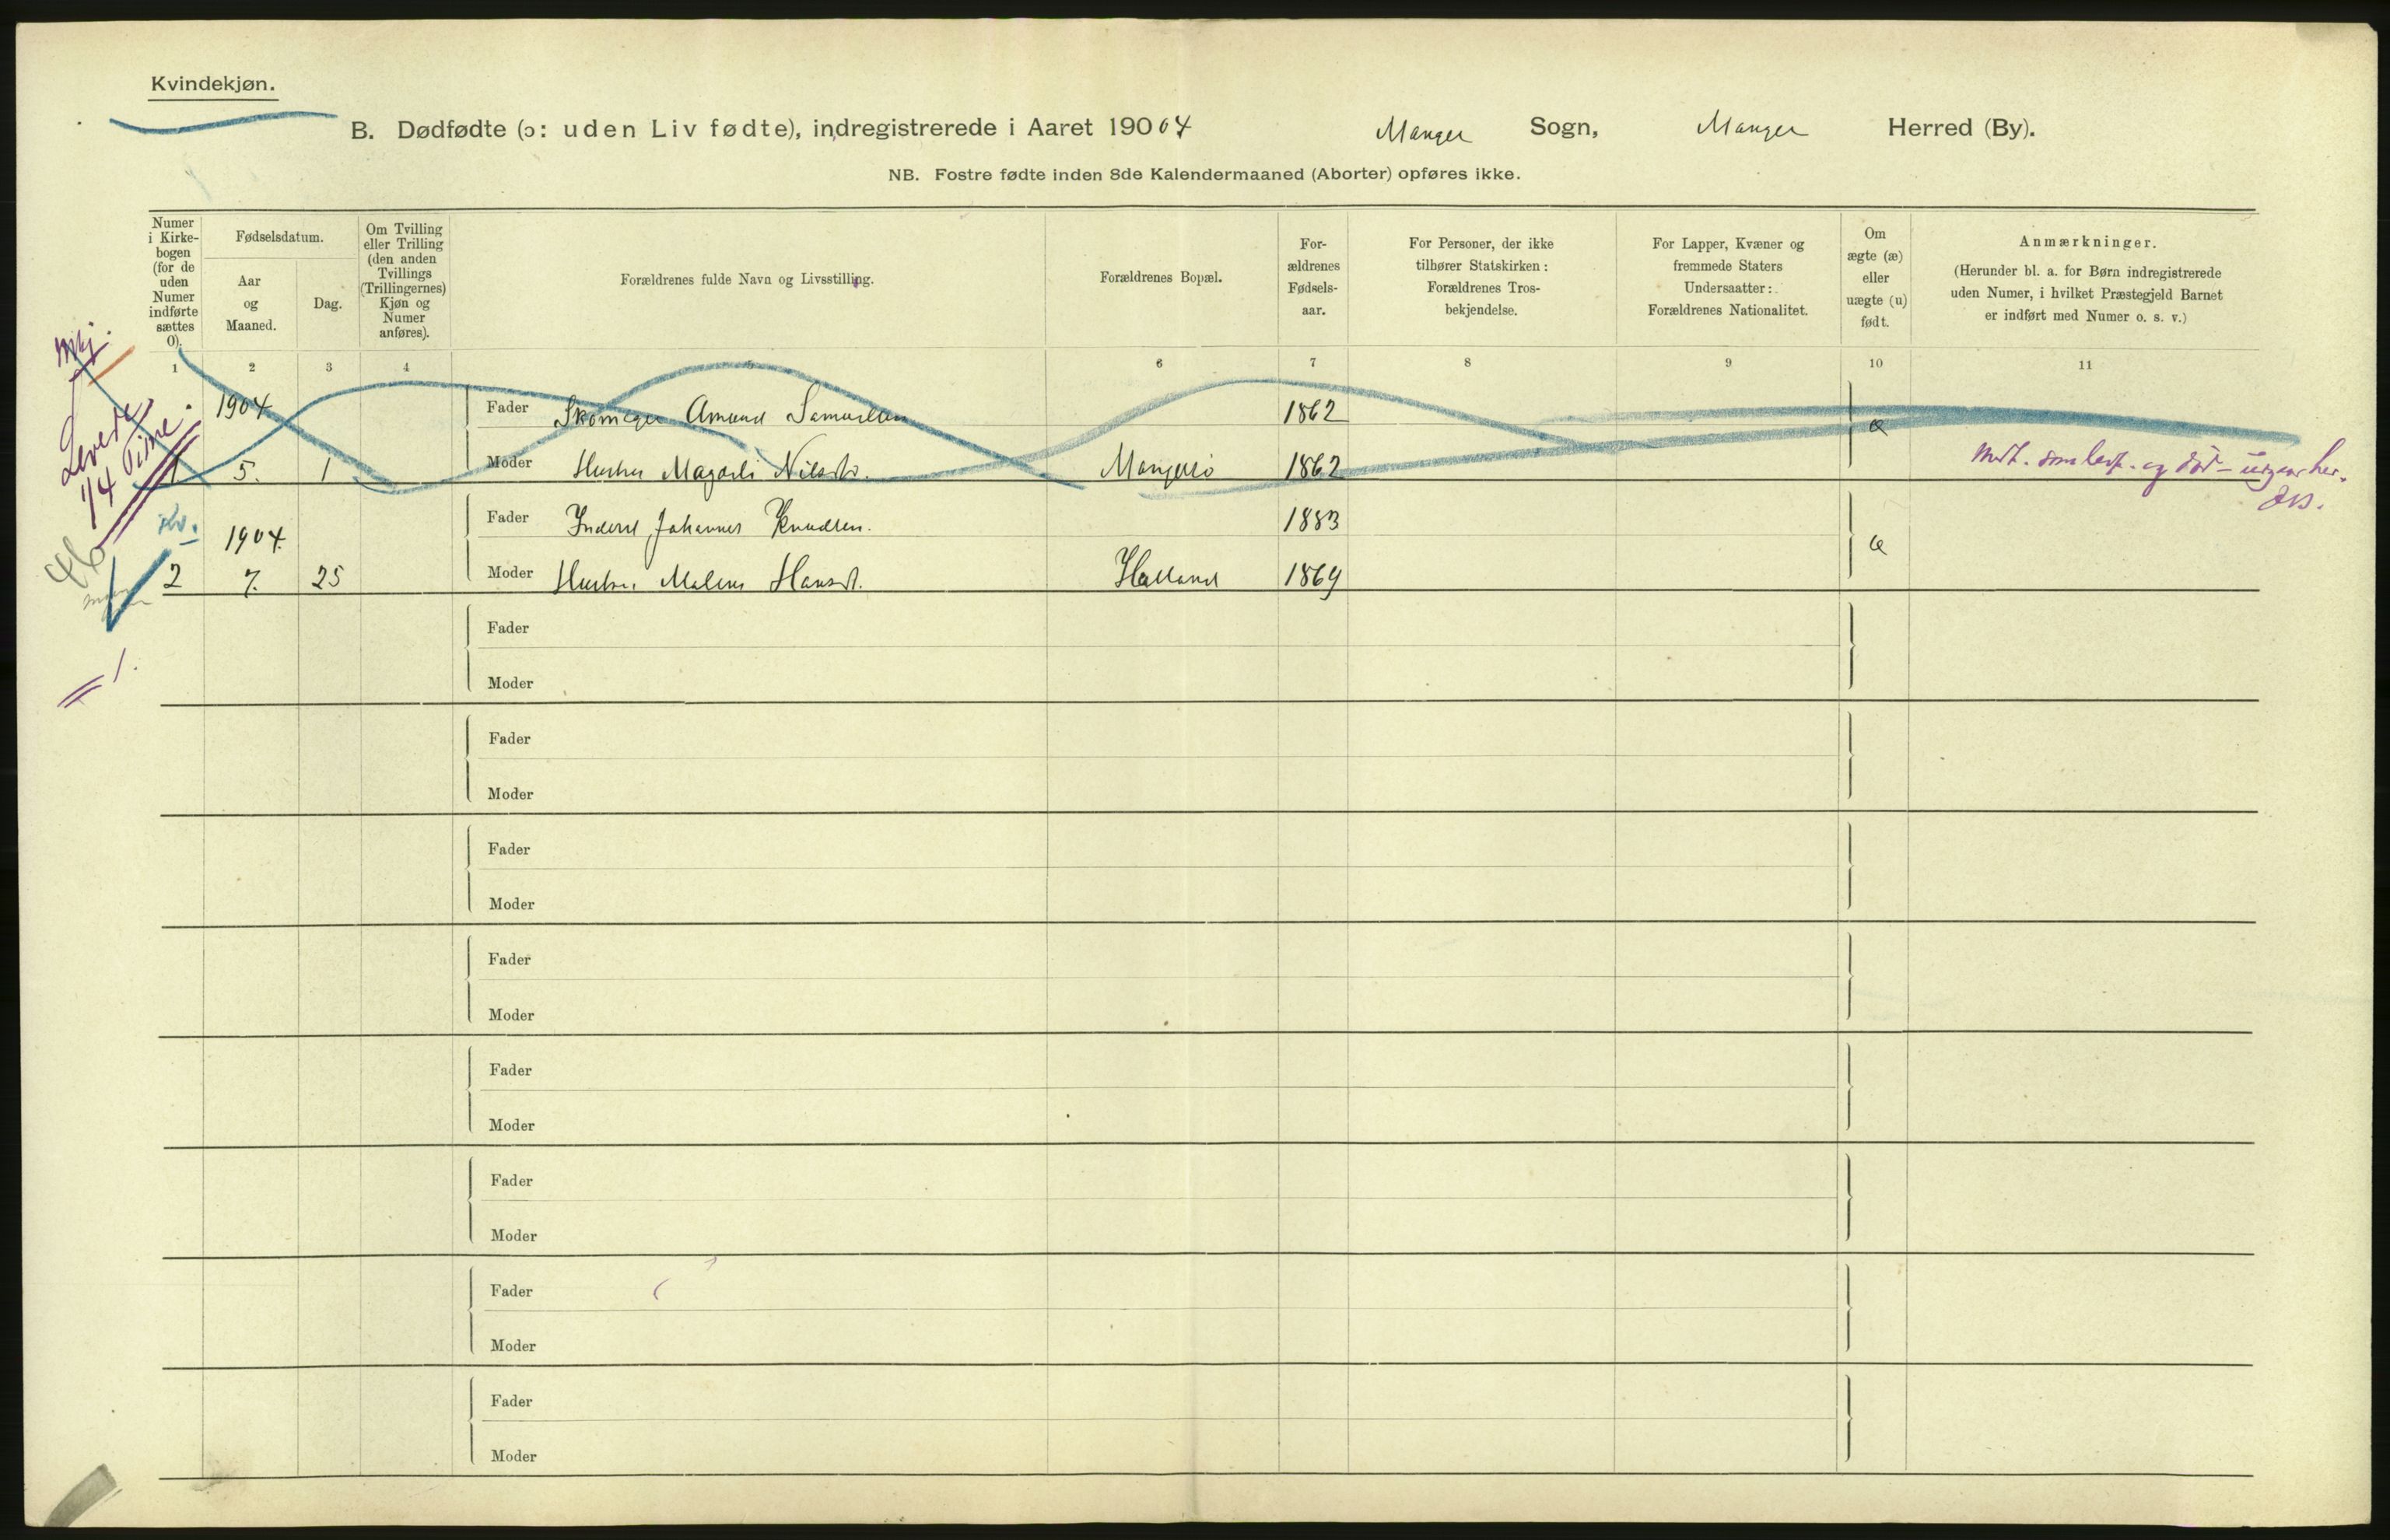 Kvindekjøn.
B. Dødfødte (ɔ: uden Liv fødte), indregistrerede i Aaret 190 04 Manger Sogn, Manger Herred (By).
NB. Fostre fødte inden 8de Kalendermaaned (Aborter) opføres ikke.
Numer
i Kirke-
bogen
(for de
uden
Numer
indførte
sættes
0).
Fødselsdatum.
Aar
og
Maaned.
Dag.
Om Tvilling
eller Trilling
(den anden
Tvillings
(Trillingernes)
Kjøn og
Numer
anføres).
Forældrenes fulde Navn og Livsstilling.
Forældrenes Bopæl.
For-
ældrenes
Fødsels-
aar.
For Personer, der ikke
tilhører Statskirken:
Forældrenes Tros-
bekjendelse.
For Lapper, Kvæner og
fremmede Staters
Undersaatter:
Forældrenes Nationalitet.
Om
ægte (æ)
eller
uægte (u)
født.
Anmærkninger.
(Herunder bl. a. for Børn indregistrerede
uden Numer, i hvilket Præstegjeld Barnet
er indført med Numer o. s. v.)
1 2 3 4 5 6 7 8 9 10 11
Mkj.
Levede
1/4 Time.
1904 Fader Skomager Amund Samuelsen 1862 æ
1 5. 1 Moder Hustru Magdeli Nilsdtr. Mangerø 1862
Kv.
1904. Fader Inderst Johannes Knudsen. 1883 æ
2 7. 25 Moder Hustru Malene Hansdt. Halland 1869
= 1.
Fader
Moder
Fader
Moder
Fader
Moder
Fader
Moder
Fader
Moder
Fader
Moder
Fader
Moder
Fader
Moder